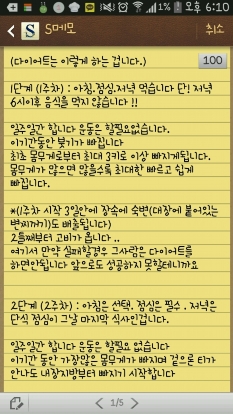 1% 오후 6:10
S S메모 취소
(다이어트는 이렇게 하는 겁니다.) 100
1단계 (1주차) : 아침,점심,저녁 먹습니다 단! 저녁
6시이후 음식을 먹지 않습니다 !!
일주일간 합니다 운동은 할필요없습니다.
이기간동안 붓기가 빠집니다
최초 몸무게로부터 최대 3키로 이상 빠지게됩니다.
몸무게가 많으면 많을수록 최대한 빠르고 쉽게
빠집니다.
*(1주차 시작 3일안에 장속에 숙변(대장에 붙어있는
변찌꺼기)도 배출됩니다)
2틀째부터 고비가 옵니다 ..
여기서 만약 실패할경우 그사람은 다이어트를
하면안됩니다 앞으로도 성공하지 못할테니까요
2단계 (2주차) : 아침은 선택. 점심은 필수 . 저녁은
단식 점심이 그날 마지막 식사인겁니다.
일주일간 합니다 운동은 할필요 없습니다
이기간 동안 가장많은 몸무게가 빠지며 겉으론 티가
안나도 내장지방부터 빠지기 시작합니다
1/5